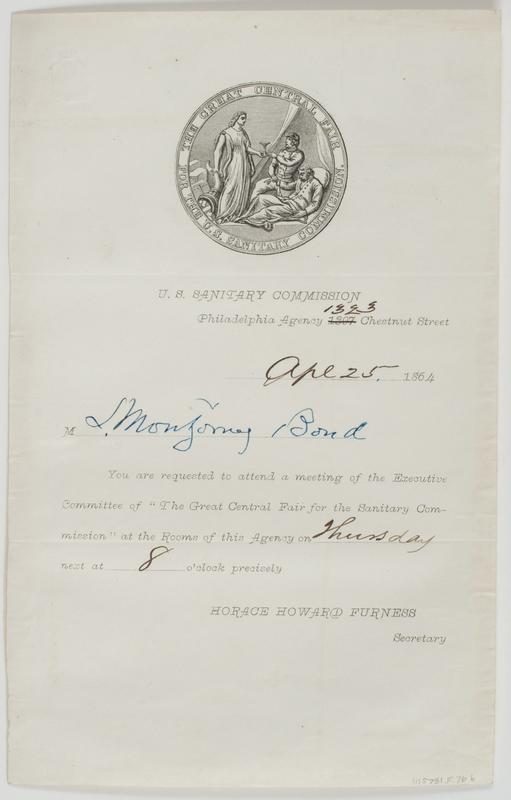 THE GREAT CENTRAL FAIR
FOR THE U.S. SANITARY COMMISSION.
U. S. SANITARY COMMISSION
1323
Philadelphia Agency 1307 Chestnut Street
Apl 25. 1864
M L. Montgomery Bond
You are requested to attend a meeting of the Executive
Committee of "The Great Central Fair for the Sanitary Com-
mission" at the Rooms of this Agency on Thursday
next at 8 o'clock precisely
HORACE HOWARD FURNESS
Secretary